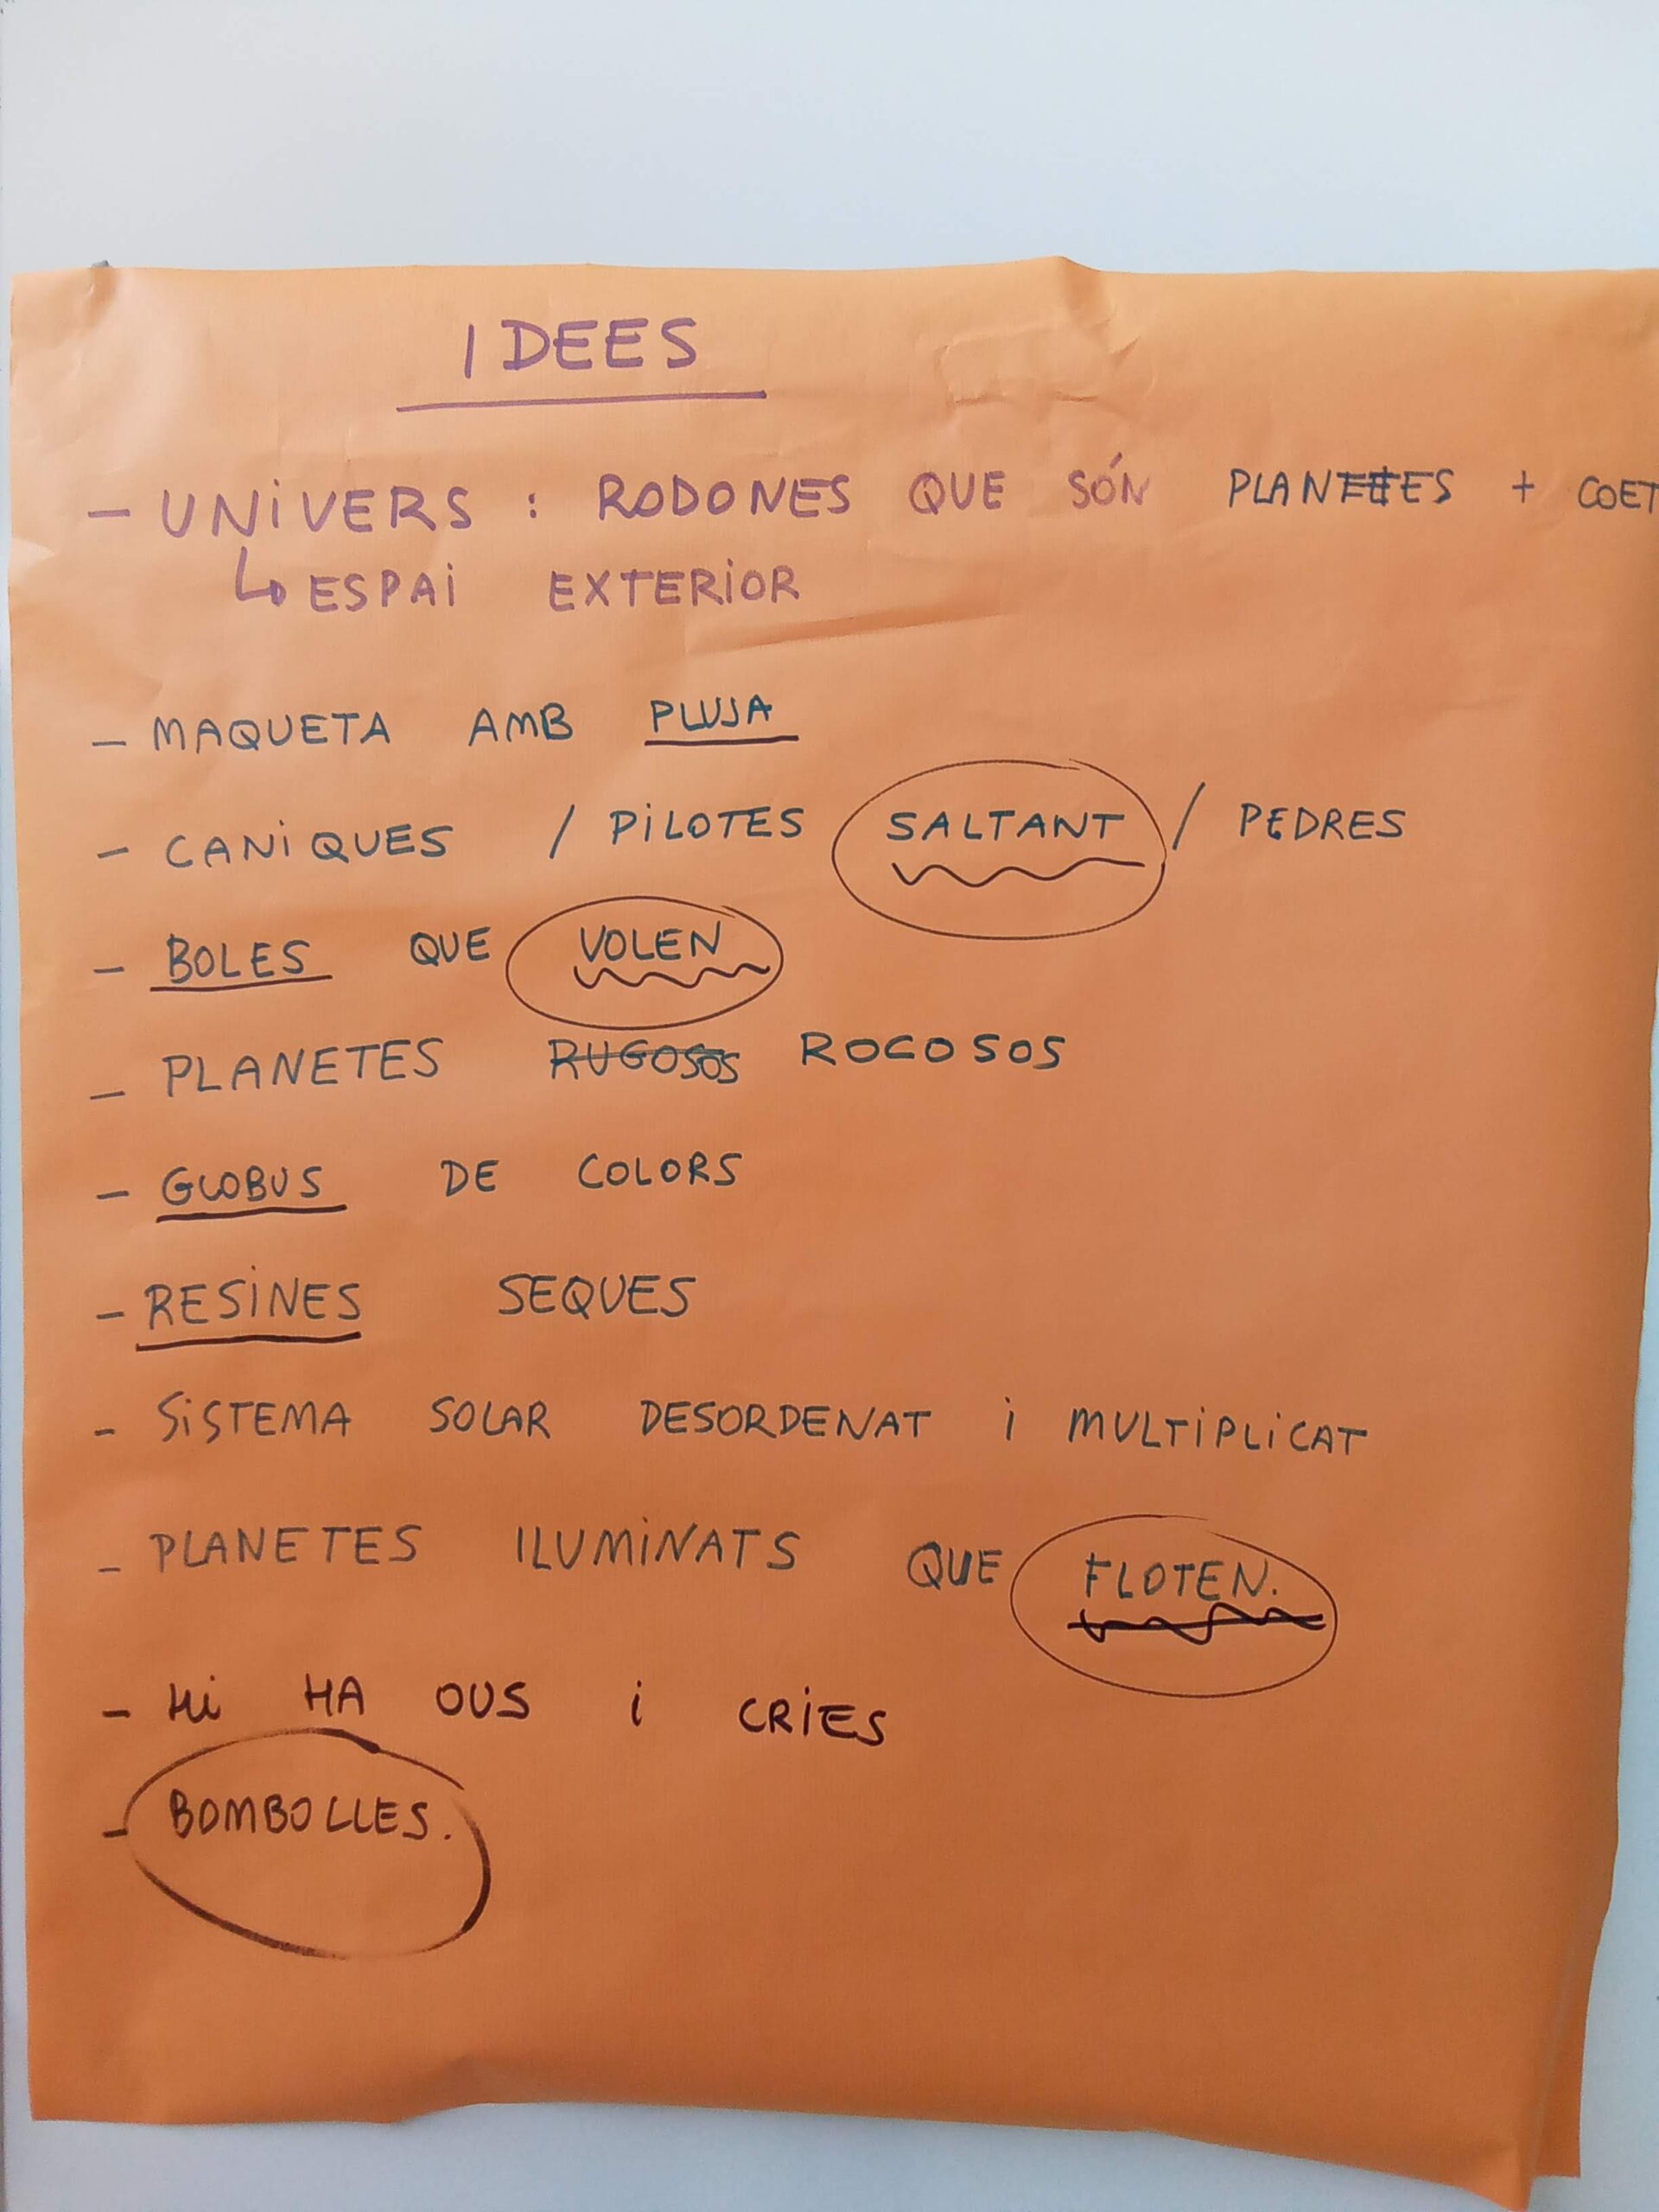 IDEES
- UNIVERS : RODONES QUE SÓN PLANETES + COET
↳ ESPAI EXTERIOR
- MAQUETA AMB PLUJA
- CANIQUES / PILOTES SALTANT / PEDRES
- BOLES QUE VOLEN
- PLANETES RUGOSOS ROCOSOS
- GLOBUS DE COLORS
- RESINES SEQUES
- SISTEMA SOLAR DESORDENAT i MULTIPLICAT
- PLANETES ILUMINATS QUE FLOTEN.
- Hi HA OUS i CRIES
- BOMBOLLES.